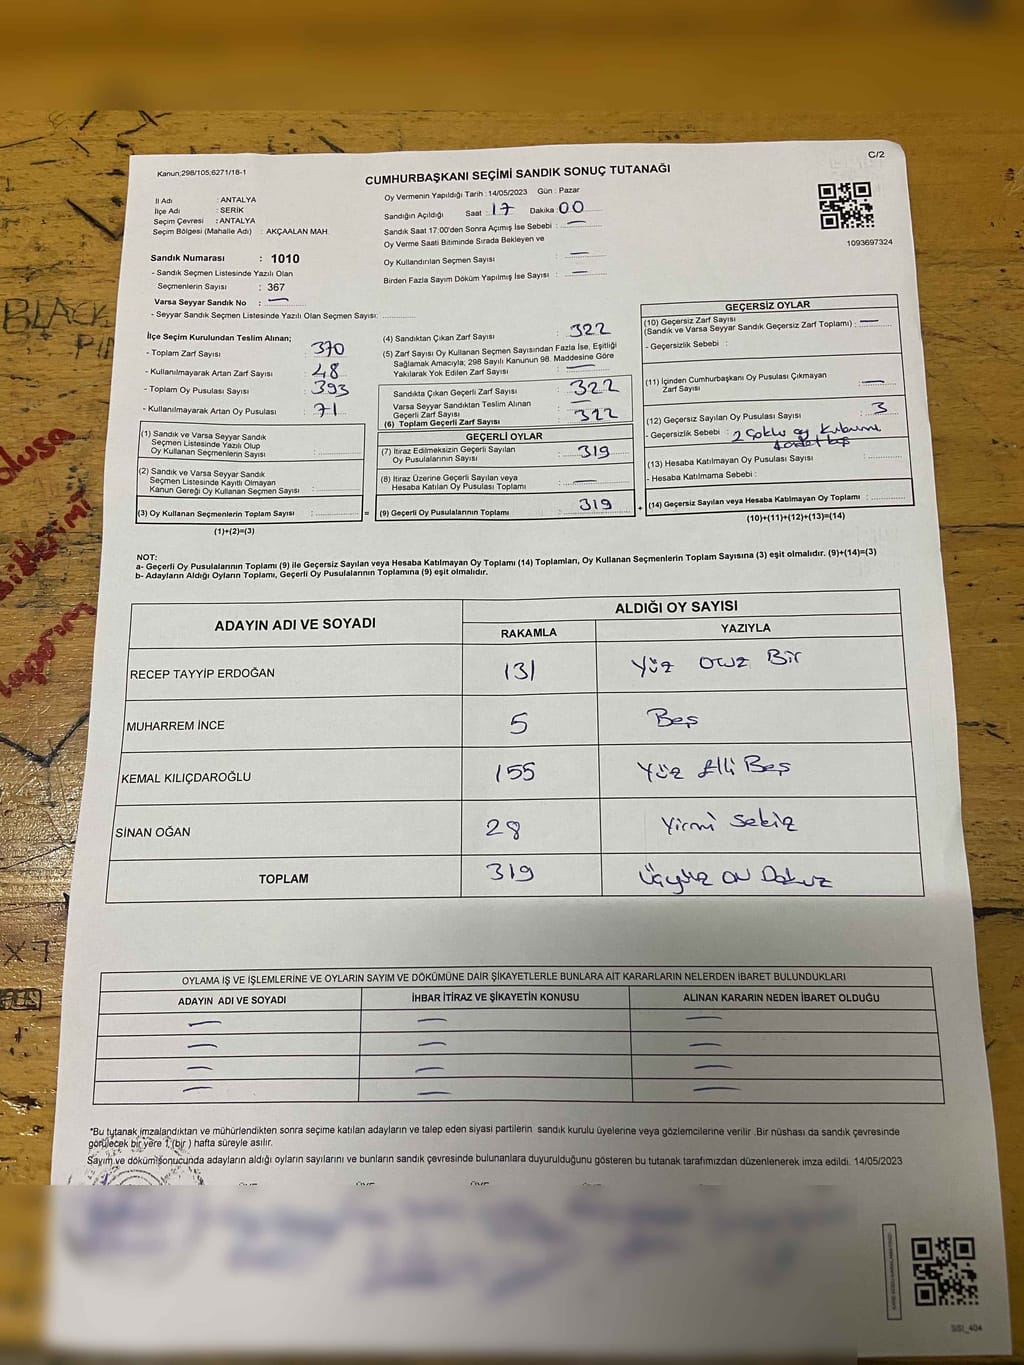 C/2
Kanun;298/105;6271/18-1
CUMHURBAŞKANI SEÇİMİ SANDIK SONUÇ TUTANAĞI
İl Adı : ANTALYA
İlçe Adı : SERİK
Seçim Çevresi : ANTALYA
Seçim Bölgesi (Mahalle Adı) : AKÇAALAN MAH
Oy Vermenin Yapıldığı Tarih :14/05/2023 Gün : Pazar
Sandığın Açıldığı Saat : 17 Dakika : 00
Sandık Saat 17:00'den Sonra Açımış İse Sebebi : —
Oy Verme Saati Bitiminde Sırada Bekleyen ve
Oy Kullandırılan Seçmen Sayısı : —
Birden Fazla Sayım Döküm Yapılmış İse Sayısı : —
1093697324
Sandık Numarası : 1010
- Sandık Seçmen Listesinde Yazılı Olan
Seçmenlerin Sayısı : 367
Varsa Seyyar Sandık No : —
- Seyyar Sandık Seçmen Listesinde Yazılı Olan Seçmen Sayısı:
İlçe Seçim Kurulundan Teslim Alınan;
- Toplam Zarf Sayısı : 370
- Kullanılmayarak Artan Zarf Sayısı : 48
- Toplam Oy Pusulası Sayısı : 393
- Kullanılmayarak Artan Oy Pusulası : 71
(1) Sandık ve Varsa Seyyar Sandık
Seçmen Listesinde Yazılı Olup
Oy Kullanan Seçmenlerin Sayısı :
(2) Sandık ve Varsa Seyyar Sandık
Seçmen Listesinde Kayıtlı Olmayan
Kanun Gereği Oy Kullanan Seçmen Sayısı :
(3) Oy Kullanan Seçmenlerin Toplam Sayısı : =
(1)+(2)=(3)
(4) Sandıktan Çıkan Zarf Sayısı : 322
(5) Zarf Sayısı Oy Kullanan Seçmen Sayısından Fazla İse, Eşitliği
Sağlamak Amacıyla; 298 Sayılı Kanunun 98. Maddesine Göre
Yakılarak Yok Edilen Zarf Sayısı : —
Sandıkta Çıkan Geçerli Zarf Sayısı : 322
Varsa Seyyar Sandıktan Teslim Alınan
Geçerli Zarf Sayısı : —
(6) Toplam Geçerli Zarf Sayısı : 322
GEÇERLİ OYLAR
(7) İtiraz Edilmeksizin Geçerli Sayılan
Oy Pusulalarının Sayısı : 319
(8) İtiraz Üzerine Geçerli Sayılan veya
Hesaba Katılan Oy Pusulası Toplamı : —
(9) Geçerli Oy Pusulalarının Toplamı : 319 +
GEÇERSİZ OYLAR
(10) Geçersiz Zarf Sayısı
(Sandık ve Varsa Seyyar Sandık Geçersiz Zarf Toplamı) : —
- Geçersizlik Sebebi :
(11) İçinden Cumhurbaşkanı Oy Pusulası Çıkmayan
Zarf Sayısı : —
(12) Geçersiz Sayılan Oy Pusulası Sayısı : 3
- Geçersizlik Sebebi : 2 Çoklu oy kullanımı
1 adet boş
(13) Hesaba Katılmayan Oy Pusulası Sayısı :
- Hesaba Katılmama Sebebi :
(14) Geçersiz Sayılan veya Hesaba Katılmayan Oy Toplamı :
(10)+(11)+(12)+(13)=(14)
NOT:
a- Geçerli Oy Pusulalarının Toplamı (9) ile Geçersiz Sayılan veya Hesaba Katılmayan Oy Toplamı (14) Toplamları, Oy Kullanan Seçmenlerin Toplam Sayısına (3) eşit olmalıdır. (9)+(14)=(3)
b- Adayların Aldığı Oyların Toplamı, Geçerli Oy Pusulalarının Toplamına (9) eşit olmalıdır.
ADAYIN ADI VE SOYADI
ALDIĞI OY SAYISI
RAKAMLA YAZIYLA
RECEP TAYYİP ERDOĞAN 131 Yüz otuz Bir
MUHARREM İNCE 5 Beş
KEMAL KILIÇDAROĞLU 155 Yüz Elli Beş
SİNAN OĞAN 28 Yirmi Sekiz
TOPLAM 319 Üçyüz on Dokuz
OYLAMA İŞ VE İŞLEMLERİNE VE OYLARIN SAYIM VE DÖKÜMÜNE DAİR ŞİKAYETLERLE BUNLARA AİT KARARLARIN NELERDEN İBARET BULUNDUKLARI
ADAYIN ADI VE SOYADI İHBAR İTİRAZ VE ŞİKAYETİN KONUSU ALINAN KARARIN NEDEN İBARET OLDUĞU
— — —
— — —
— — —
— — —
*Bu tutanak imzalandıktan ve mühürlendikten sonra seçime katılan adayların ve talep eden siyasi partilerin sandık kurulu üyelerine veya gözlemcilerine verilir .Bir nüshası da sandık çevresinde
görülecek bir yere 1 (bir ) hafta süreyle asılır.
Sayım ve döküm sonucunda adayların aldığı oyların sayılarını ve bunların sandık çevresinde bulunanlara duyurulduğunu gösteren bu tutanak tarafımızdan düzenlenerek imza edildi. 14/05/2023
SSI_404
BLACK
X 7